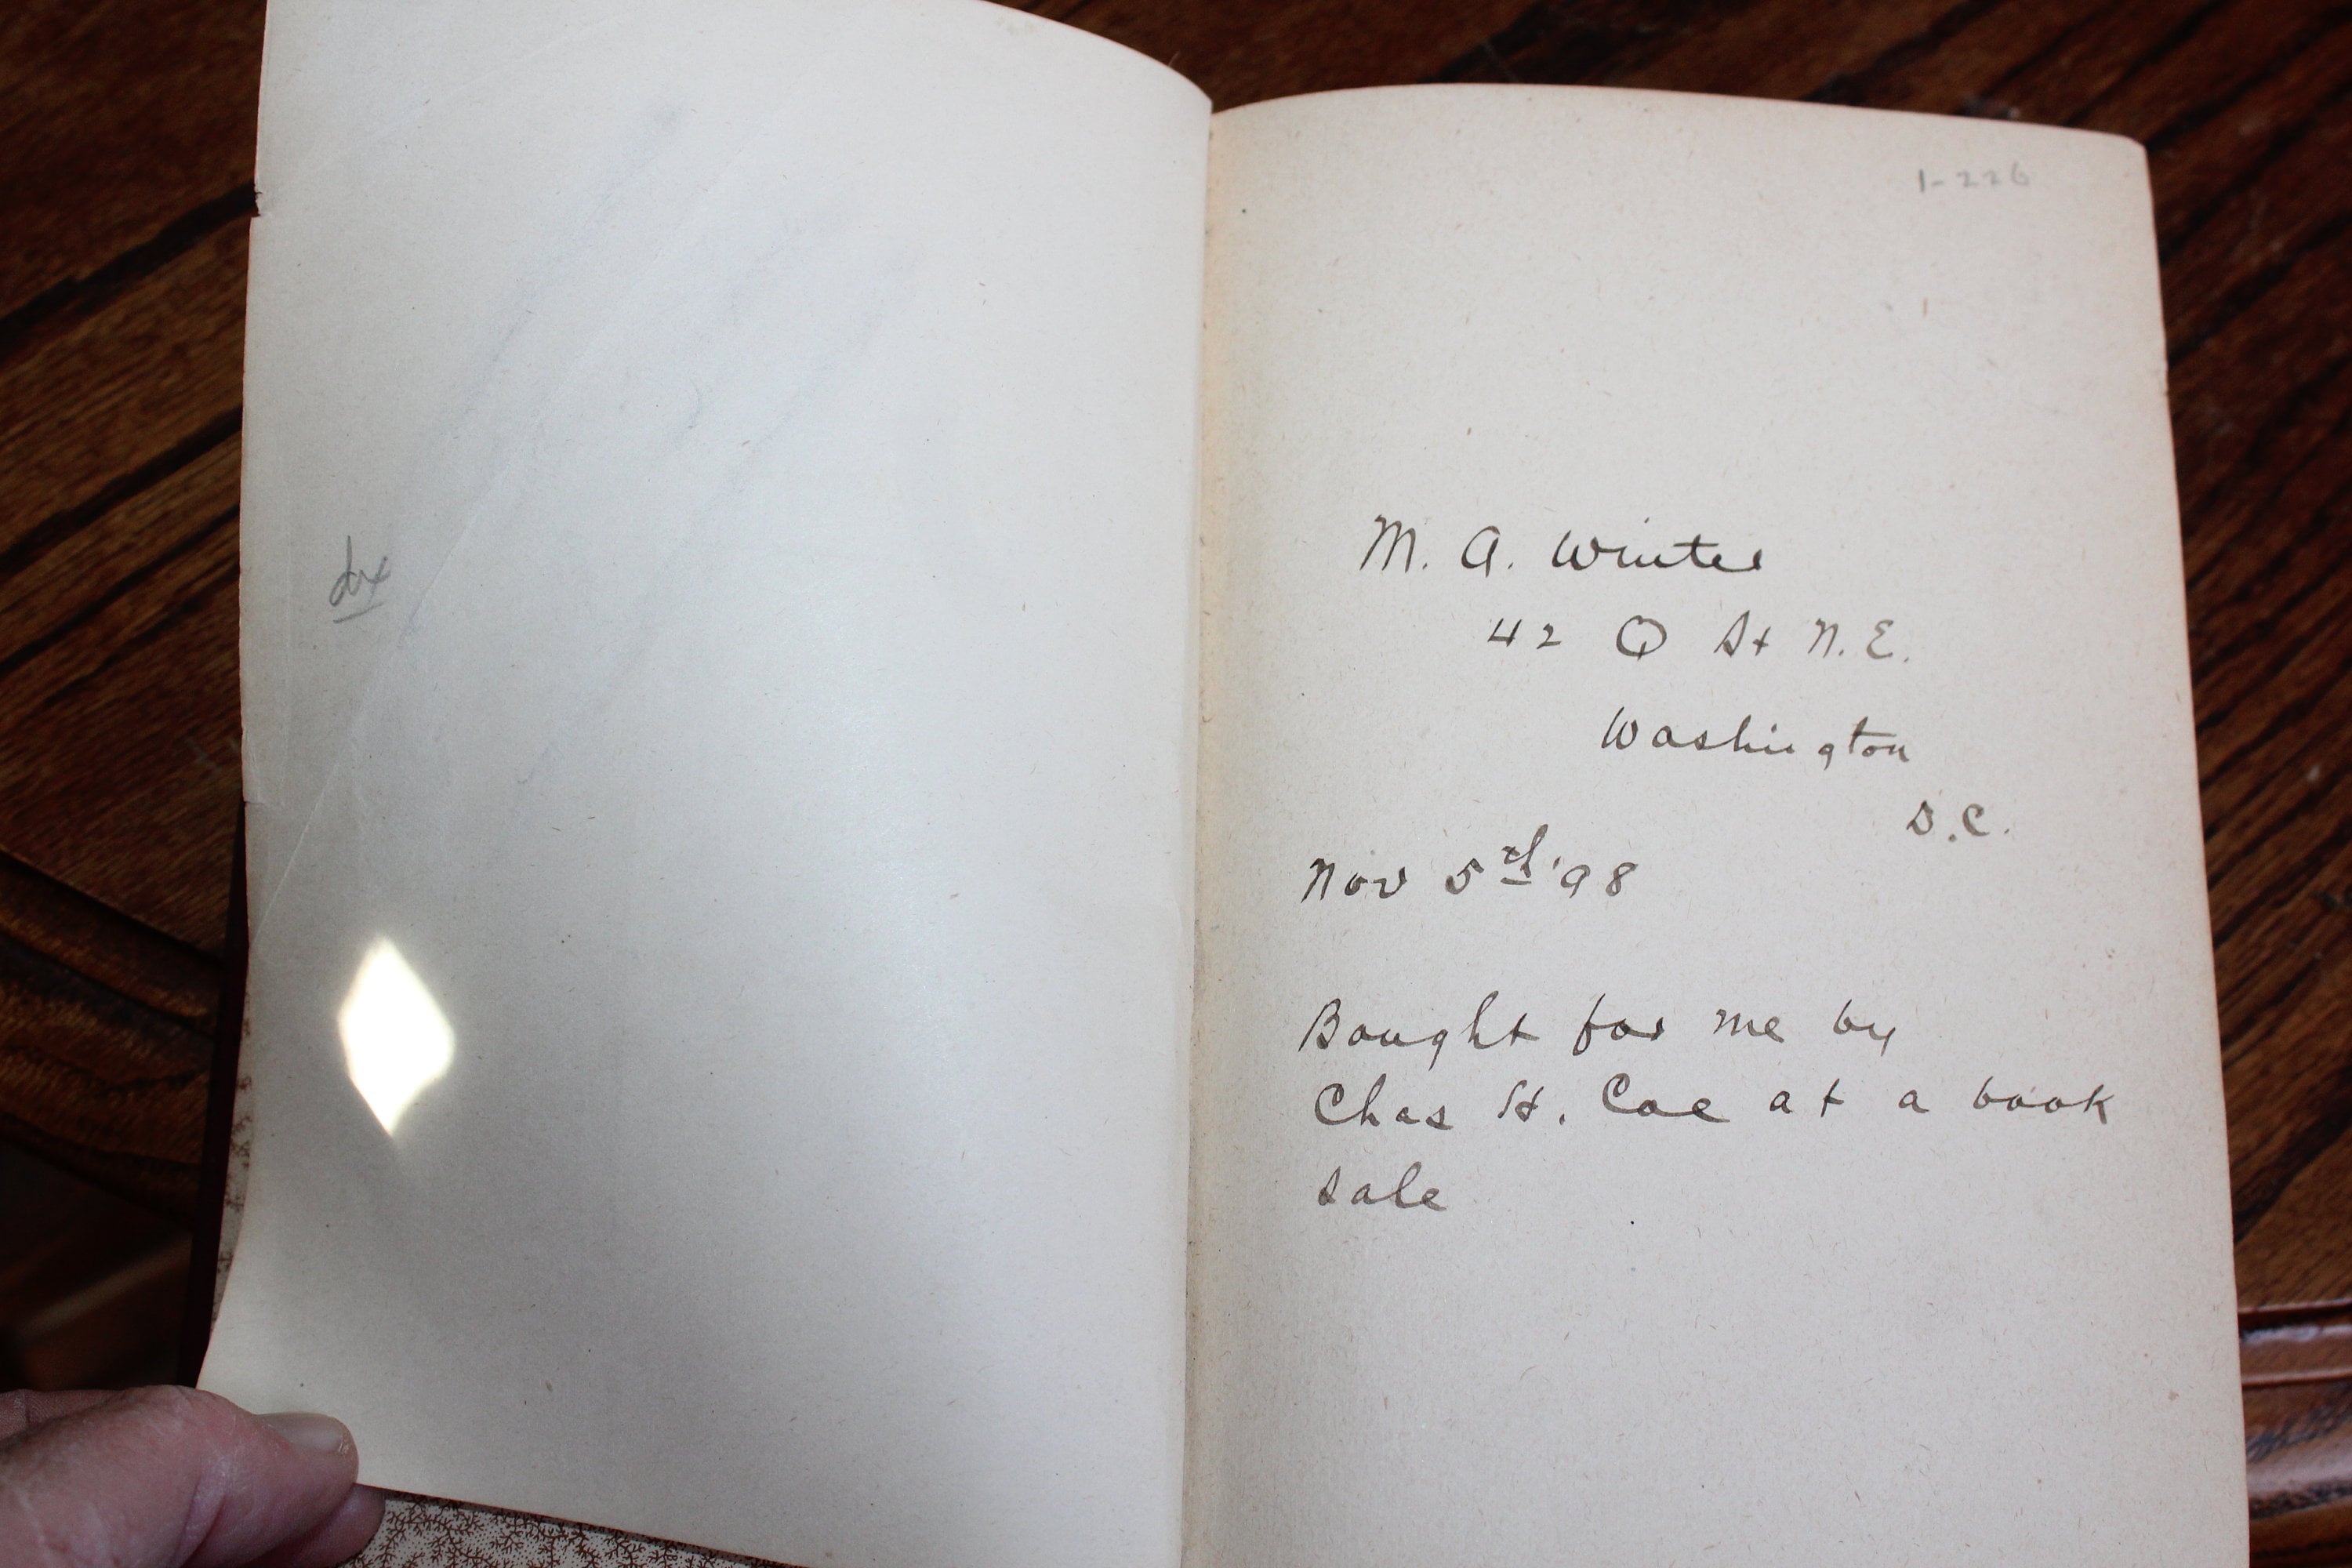 dx
1-226
M. A. Winter
42 Q St N.E.
Washington
D.C.
Nov 5th '98
Bought for me by
Chas H. Coe at a book
sale